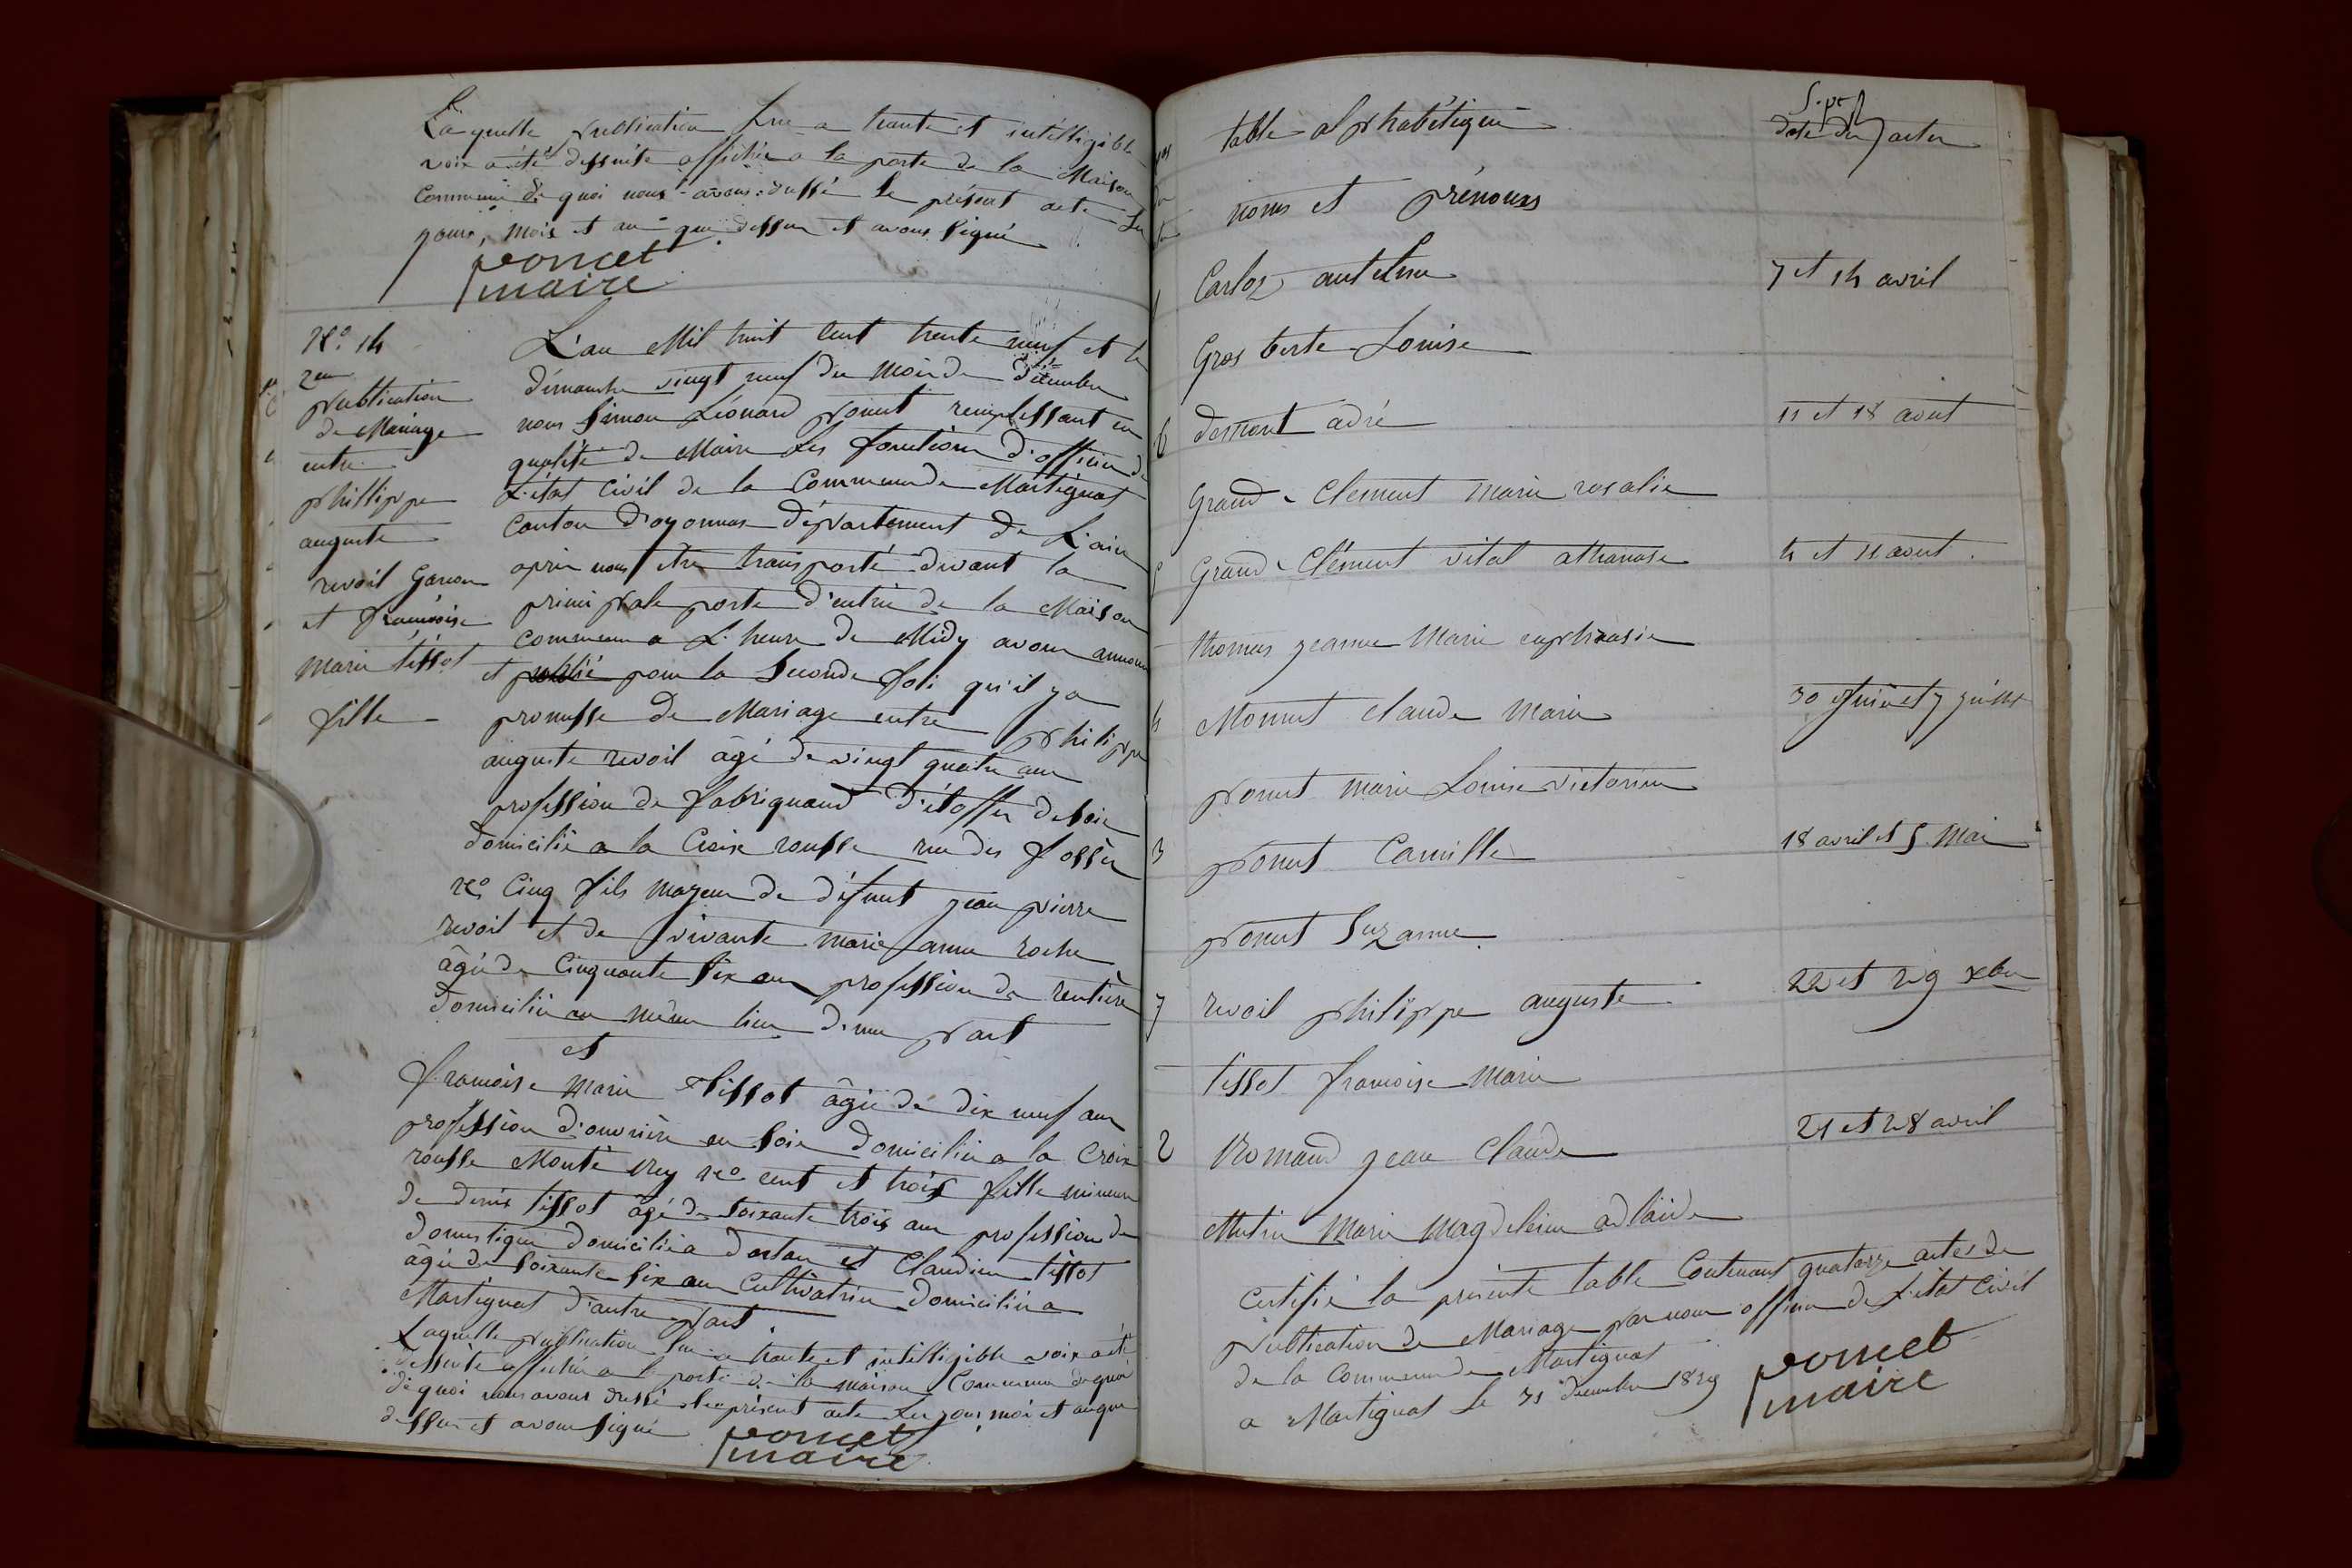 Laquelle publication Lue a haute et intelligible
voix a été dessuite affichée a la porte de la Maison
Commune de quoi nous avons dressé le présent acte Les
jours, mois et an que dessus et avons signé
poncet
maire
N.o 14
2em
publication
de Mariage
entre
phillippe
auguste
revoil Garcon
et francoise
marie tissot
fille
L'an Mil huit Cent trente neuf et le
dimanche vingt neuf du mois de décembre
nous Simon Léonard poncet remplissant en
qualité de Maire les fonctions d'officier de
L'état Civil de la Commune de Martignat
Canton d'oyonnax département de L'ain
aprés nous etre transporté devant la
principale porte d'entrée de la Maison
commune a L'heure de Midy avons annoncé
et publié pour la Seconde fois qu'il y a
promesse de Mariage entre philippe
auguste revoil âgé de vingt quatre ans
profession de fabriquand d'étoffes de Soie
domicilié a la Croix rousse rue des fossés
N.o Cinq fils majeur de défunt jean pierre
revoil et de vivante marie anne roche
âgée de Cinquante Six ans profession de rentière
domiciliée au même lieu d'une part
et
francoise marie tissot âgée de dix neuf ans
profession d'ouvrière en soie domiciliée a la Croix
rousse Monté rey N.o cent et trois fille mineure
de denis tissot âgé de soixante trois ans profession de
domestique domicilié a dortan et Claudine tissot
âgée de soixante six ans Cultivatrice domiciliée a
Martignat d'autre part
Laquelle publication lue a haute et intelligible voix a été
dessuite affichée a la porte de la maison Commune de quoi
de quoi nous avons dressé le présent acte Les jour, moi et an que
dessus et avons signé
poncet
maire
table alphabétique
date des actes
noms et prénoms
1 Carloz anthelme 7 et 14 avril
Gros Louise
6 adré 11 et 18 aout
Grand-Clément marie rosalie
5 Grand-Clément vital athanase 4 et 11 aout
thomas jeanne Marie euphrasie
4 Monnet claude Marie 30 juin et 7 juillet
poncet marie Louise victorine
3 poncet Camille 18 avril et 5 Mai
poncet Suzanne
7 revoil philippe auguste 22 et 29 xbre
tissot francoise Marie
2 Romand jean Claude 21 et 28 avril
Marie Magdeleine adlaïde
Certifié la présente table Contenant quatorze actes de
publication de Mariage par nous officier de L'état Civil
de la Commune de Martignat
a Martignat Le 31 décembre 1839
poncet
maire